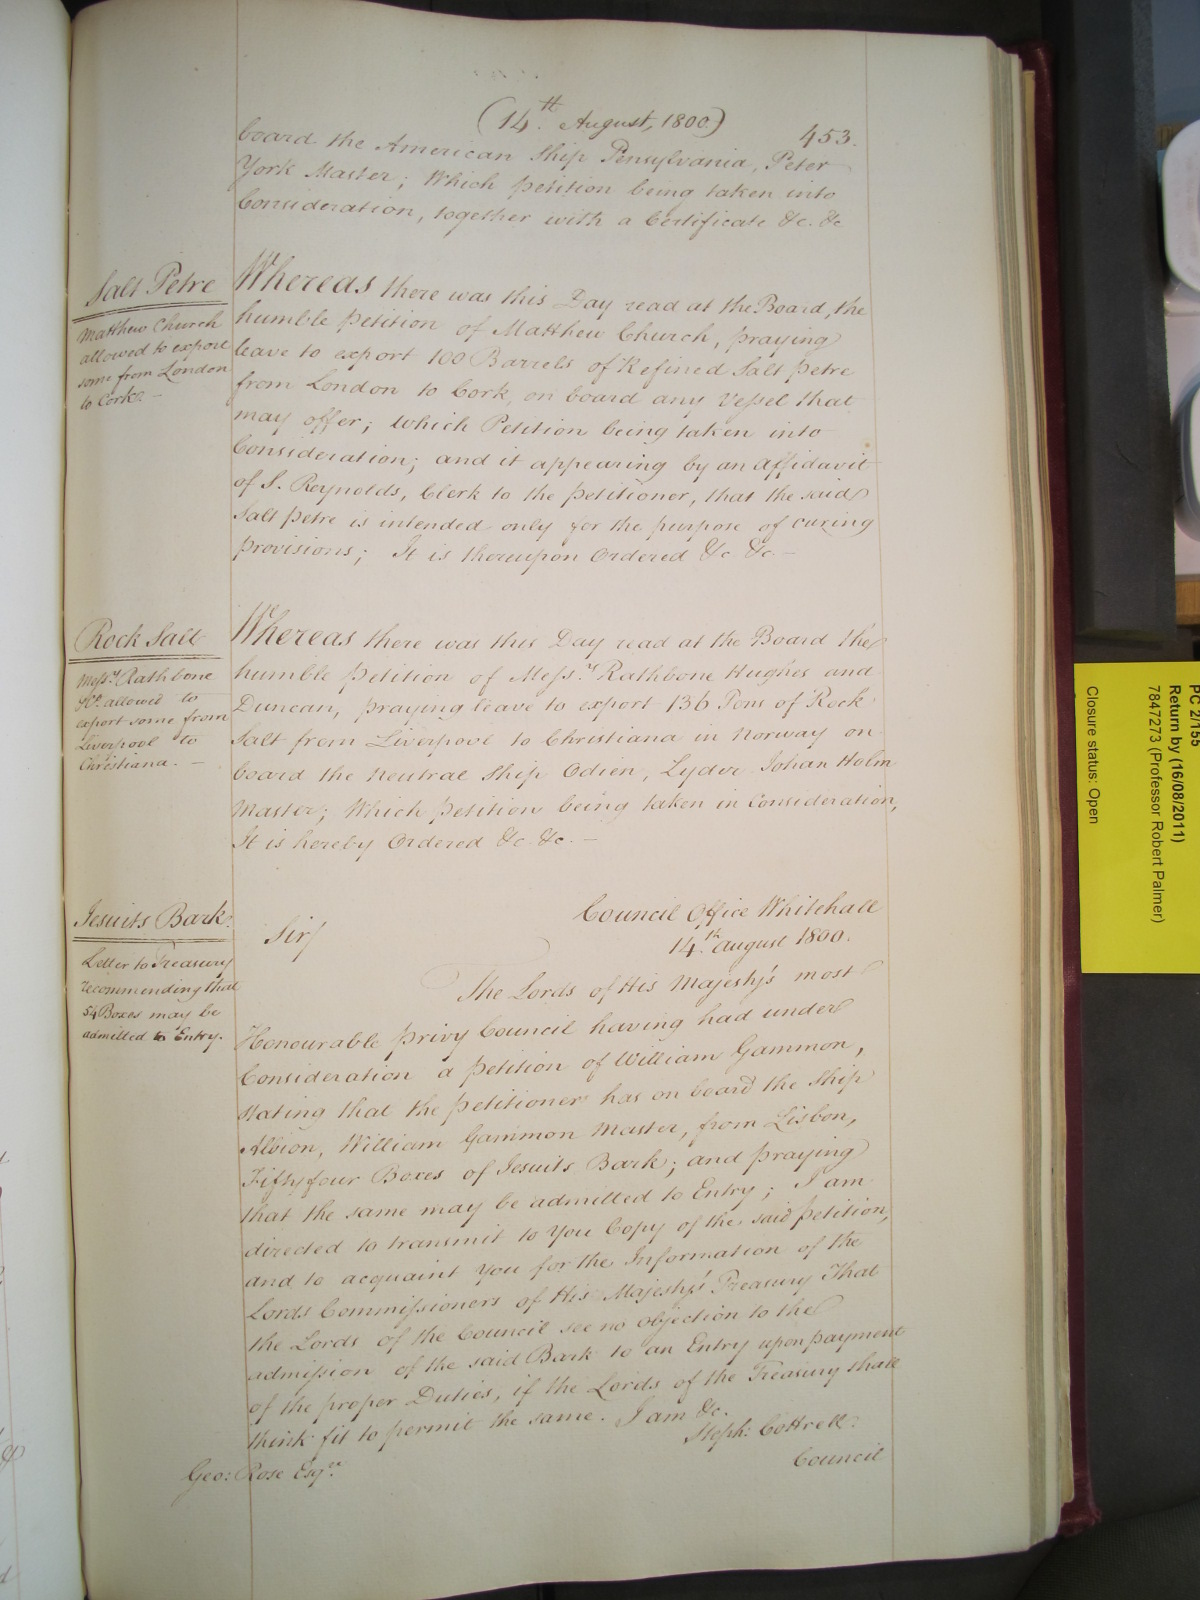 (14th August, 1800.)
453.
board the American Ship Pensylvania, Peter
York Master; Which petition being taken into
Consideration, together with a Certificate &c. &c
Salt Petre
Matthew Church
allowed to export
some from London
to Cork. —
Whereas there was this Day read at the Board, the
humble Petition of Matthew Church, praying
leave to export 100 Barrels of Refined Salt petre
from London to Cork, on board any Vessel that
may offer; which Petition being taken into
Consideration; and it appearing by an Affidavit
of S. Reynolds, Clerk to the petitioner, that the said
Salt petre is intended only for the purpose of curing
provisions; It is thereupon Ordered &c. &c. —
Rock Salt
Messrs. Rathbone
&Co. allowed to
export some from
Liverpool to
Christiana. —
Whereas there was this Day read at the Board the
humble Petition of Messrs. Rathbone Hughes and
Duncan, praying leave to export 136 Tons of Rock
Salt from Liverpool to Christiana in Norway on
board the Neutral Ship Odien, Lyder Johan Holm
Master; Which petition being taken in Consideration,
It is hereby Ordered &c. &c. —
Jesuits Bark.
Letter to Treasury
recommending that
54 Boxes may be
admitted to Entry.
Council Office Whitehall
14th August 1800.
Sir/
The Lords of His Majesty's most
Honourable privy Council having had under
Consideration a petition of William Gammon,
stating that the petitioner has on board the Ship
Albion, William Gammon Master, from Lisbon,
Fifty four Boxes of Jesuits Bark; and praying
that the same may be admitted to Entry; I am
directed to transmit to You Copy of the said petition,
and to acquaint You for the Information of the
Lords Commissioners of His Majesty's Treasury That
the Lords of the Council see no objection to the
admission of the said Bark to an Entry upon payment
of the proper Duties, if the Lords of the Treasury shall
think fit to permit the same. I am &c.
Steph: Cottrell.
Geo: Rose Esqr.
Council
PC 2/155
Return by (16/08/2011)
7847273 (Professor Robert Palmer)
Closure status: Open